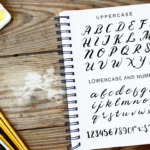 UPPERCASE
A B C D E F G
H I J K L M
N O P Q R S
T U V W X Y Z
LOWERCASE AND NUMB
a b c d e f g h
i j k l m n o p
q r s t u v w x y z
1234567890